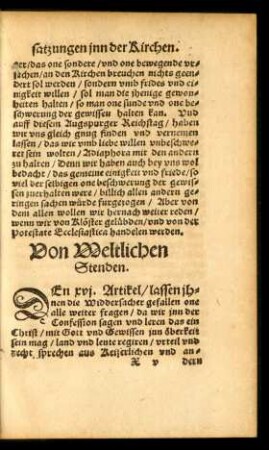 satzungen jnn der Kirchen.
ger/das one sondere/vnd one bewegende vr-
sachen/an den Kirchen breuchen nichts geen-
dert sol werden/sondern vmb frides vnd ei-
nigkeit willen/sol man die jhenige gewon-
heiten halten/so man one sunde vnd one be-
schwerung der gewissen halten kan. Vnd
auff diesen Augspurger Reichstag/haben
wir vns gleich gnug finden vnd vernemen
lassen/das wir vmb liebe willen vnbeschwe-
ret sein wolten/Adiaphora mit den andern
zu halten/Denn wir haben auch bey vns wol
bedacht/das gemeine einigkeit vnd friede/so
viel der selbigen one beschwerung der gewis-
sen zuerhalten were/billich allen andern ge-
ringen sachen würde furgezogen/Aber von
dem allen wollen wir hernach weiter reden/
wenn wir von Klöster gelübden/vnd von der
Potestate Ecclesiastica handelen werden.
Von Weltlichen
Stenden.
DEn xvj. Artikel/lassen jh-
nen die Widdersacher gefallen one
alle weiter fragen/da wir jnn der
Confession sagen vnd leren das ein
Christ/mit Gott vnd Gewissen jnn öberkeit
sein mag/land vnd leute regiren/vrteil vnd
recht sprechen aus Keiserlichen vnd an-
X v dern